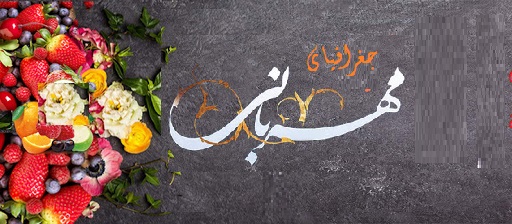 جغرافیای
مهربانی